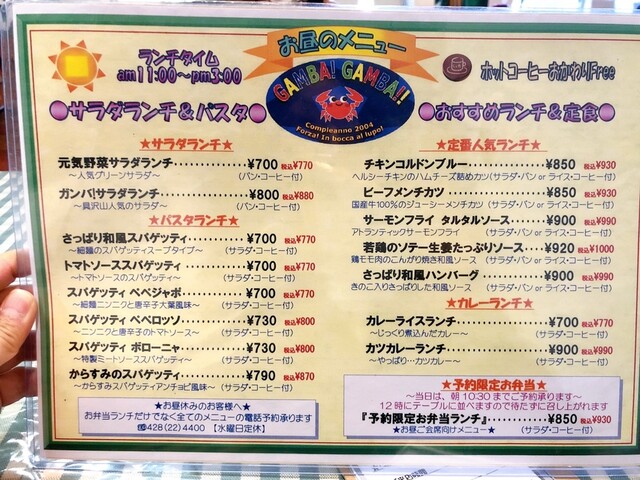 お昼のメニュー
ランチタイム
am11:00〜pm3:00
GAMBA! GAMBA!!
Compleanno 2004
Forza! In bocca al lupo!
ホットコーヒーおかわりFree
●サラダランチ&パスタ●
★サラダランチ★
元気野菜サラダランチ‥‥‥‥‥¥700 税込¥770
〜人気グリーンサラダ〜 (パン・コーヒー付)
ガンバ!サラダランチ‥‥‥‥‥¥800 税込¥880
〜具沢山人気のサラダ〜 (パン・コーヒー付)
★パスタランチ★
さっぱり和風スパゲッティ‥‥‥¥700 税込¥770
〜細麺のスパゲッティスープタイプ〜 (サラダ・コーヒー付)
トマトソーススパゲッティ‥‥‥¥700 税込¥770
〜トマトソースのスパゲッティ〜 (サラダ・コーヒー付)
スパゲッティ ペペジャポ‥‥‥¥700 税込¥770
〜細麺ニンニクと唐辛子大葉風味〜 (サラダ・コーヒー付)
スパゲッティ ペペロッソ‥‥‥¥730 税込¥800
〜ニンニクと唐辛子のトマトソース〜 (サラダ・コーヒー付)
スパゲッティ ボローニャ‥‥‥¥730 税込¥800
〜特製ミートソーススパゲッティ〜 (サラダ・コーヒー付)
からすみのスパゲッティ‥‥‥‥¥790 税込¥870
〜からすみスパゲッティアンチョビ風味〜 (サラダ・コーヒー付)
★お昼休みのお客様へ★
お弁当ランチだけでなく全てのメニューの電話予約承ります
☎0428(22)4400 【水曜日定休】
●おすすめランチ&定食●
★定番人気ランチ★
チキンコルドンブルー‥‥‥‥‥¥850 税込¥930
ヘルシーチキンのハムチーズ詰めカツ(サラダ・パン or ライス・コーヒー付)
ビーフメンチカツ‥‥‥‥‥‥‥¥850 税込¥930
国産牛100%のジューシーメンチカツ(サラダ・パン or ライス・コーヒー付)
サーモンフライ タルタルソース‥¥900 税込¥990
アトランティックサーモンフライ (サラダ・パン or ライス・コーヒー付)
若鶏のソテー生姜たっぷりソース‥¥920 税込¥1000
鶏モモ肉のこんがり焼き和風ソース (サラダ・パン or ライス・コーヒー付)
さっぱり和風ハンバーグ‥‥‥‥¥900 税込¥990
きのこ入りさっぱりした和風ソース (サラダ・パン or ライス・コーヒー付)
★カレーランチ★
カレーライスランチ‥‥‥‥‥‥¥700 税込¥770
〜じっくり煮込んだカレー〜 (サラダ・コーヒー付)
カツカレーランチ‥‥‥‥‥‥‥¥900 税込¥990
〜やっぱり…カツカレー〜 (サラダ・コーヒー付)
★予約限定お弁当★
〜当日は、朝10:30までご予約承ります〜
12時にテーブルに並べますので待たずに召し上がれます
『予約限定お弁当ランチ』‥‥¥850 税込¥930
★お昼ご会席向けメニュー★ (サラダ・コーヒー付)